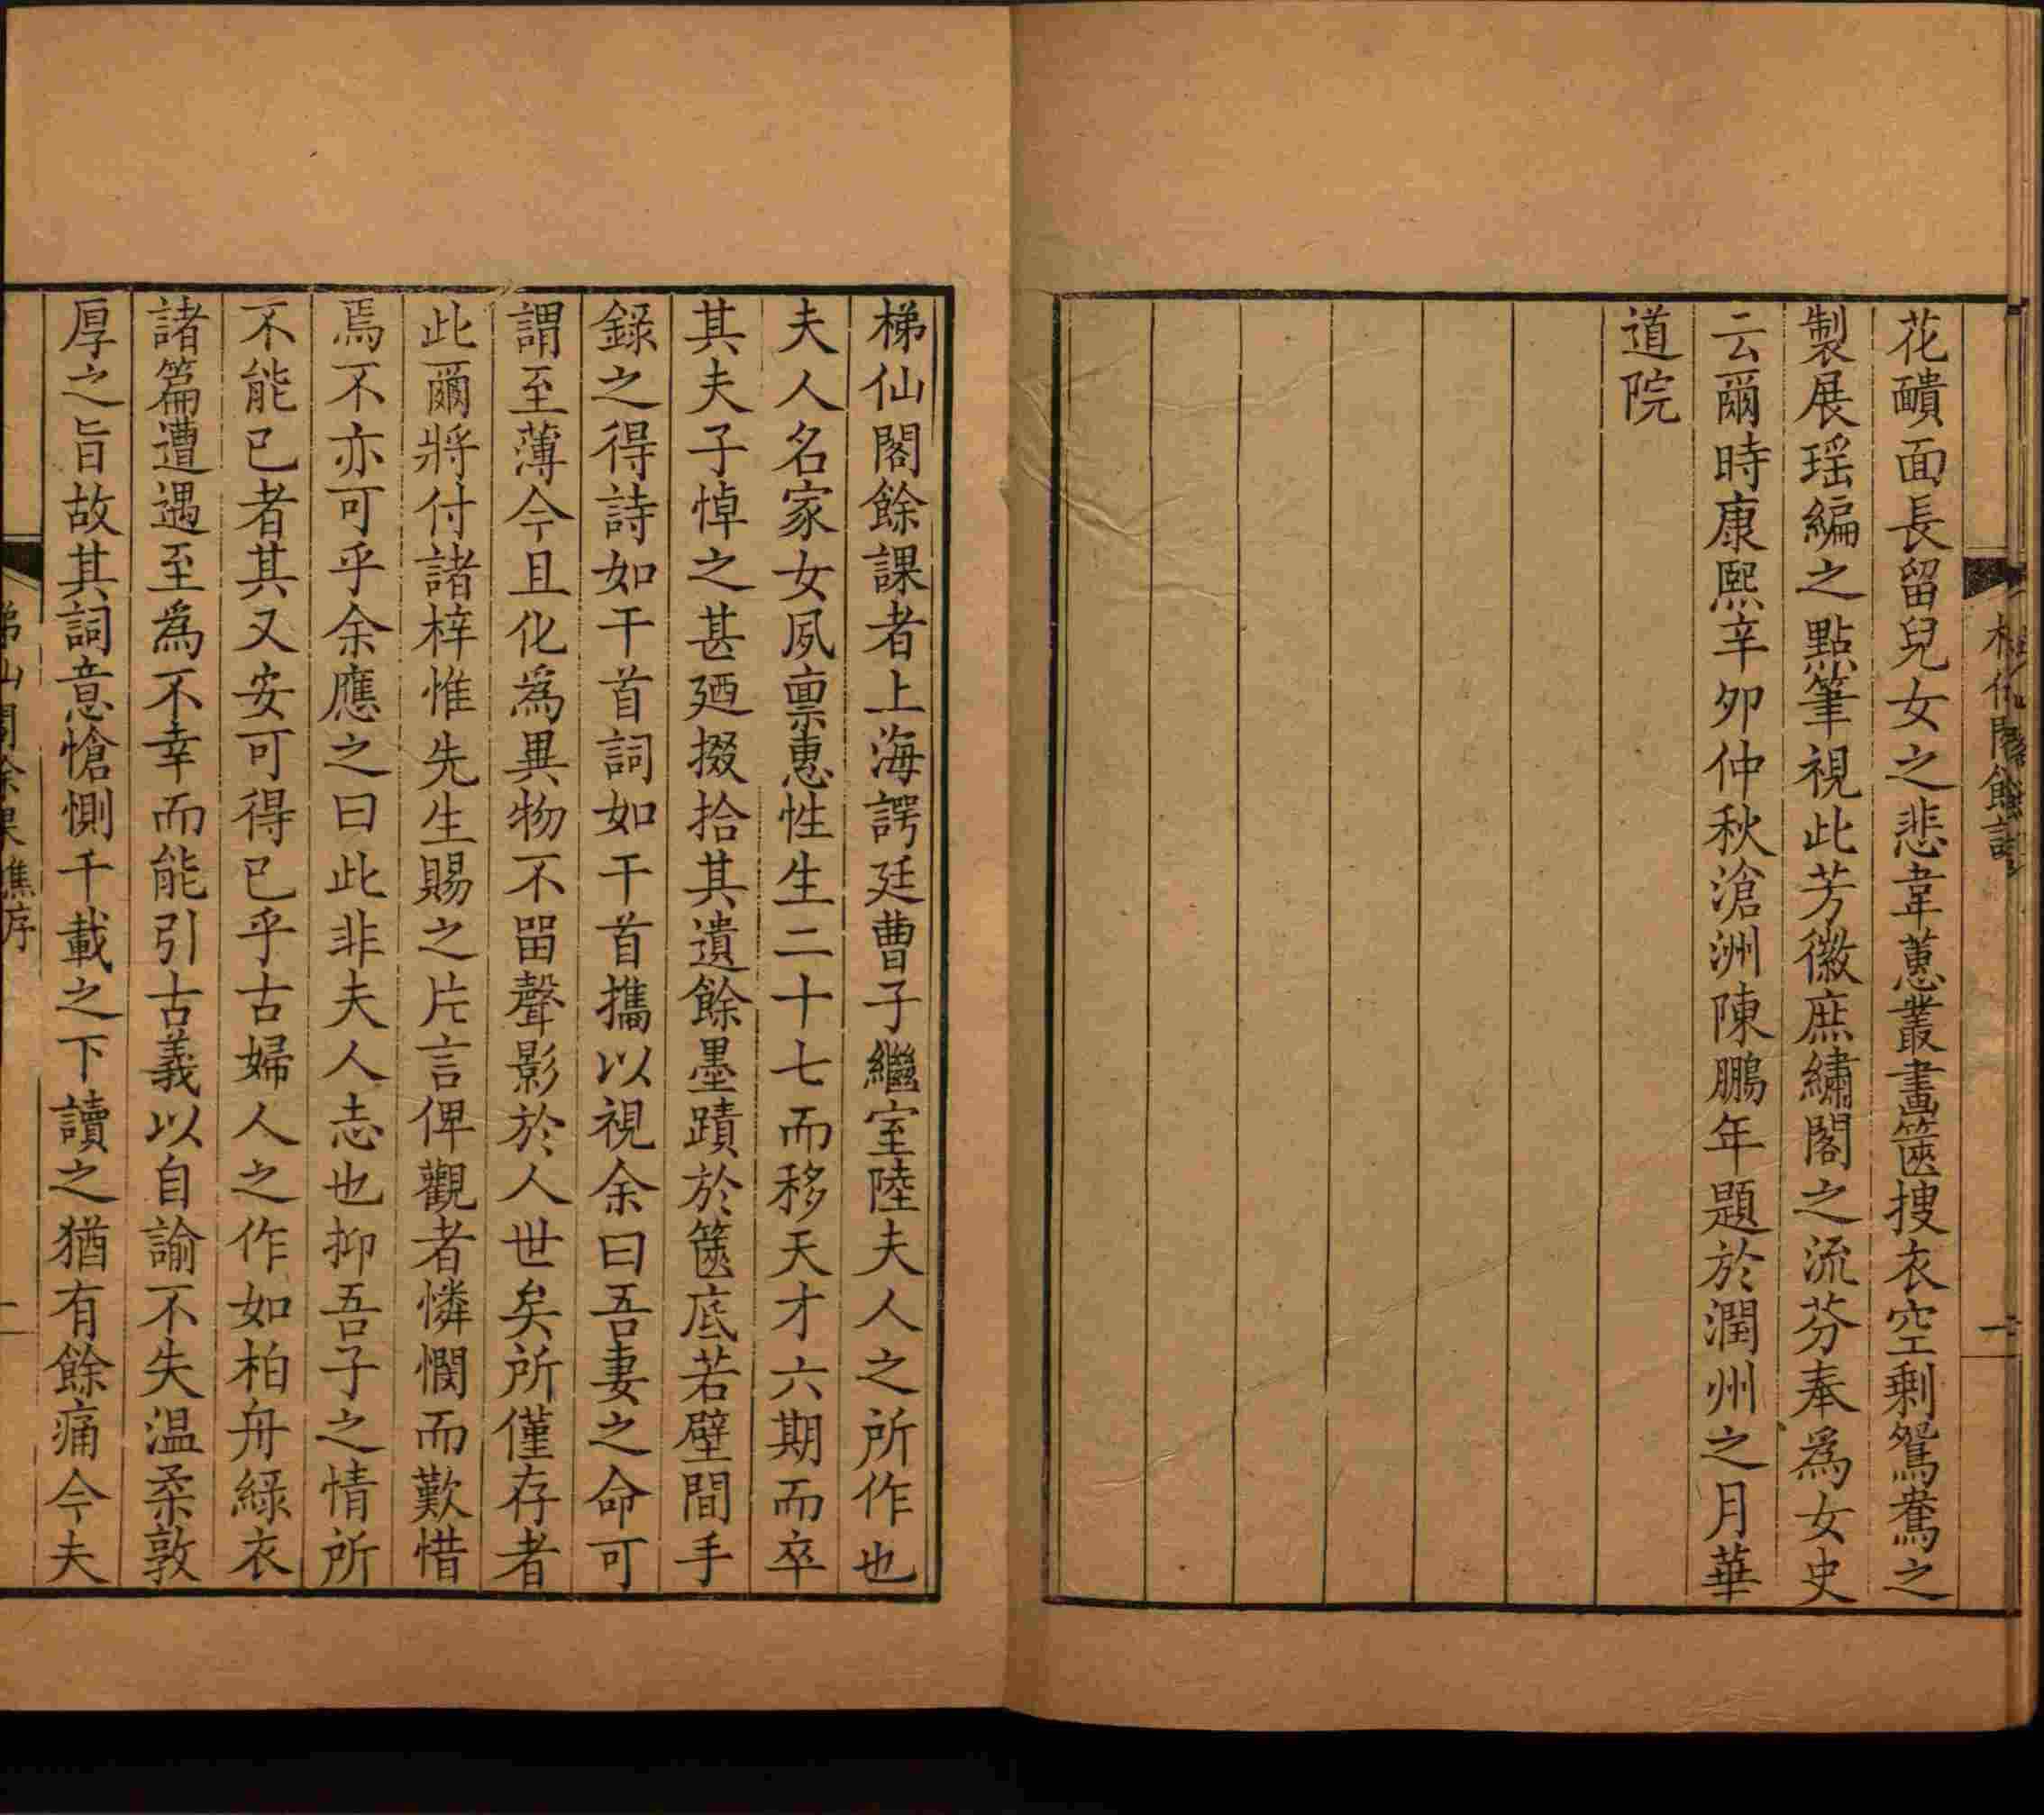 花靧面長留兒女之悲韋蕙叢畫篋搜衣空剩鴛鴦之
製展瑶編之點筆視此芳徽庶繡閣之流芬奉為女史
云爾時康熙辛夘仲秋滄洲陳鵬年題於潤州之月華
道院
梯仙閣餘課者上海諤廷曹子繼室陸夫人之所作也
夫人名家女夙禀惠性生二十七而移天才六期而卒
其夫子悼之甚廼掇拾其遺餘墨蹟於篋底若壁間手
錄之得詩如干首詞如干首攜以視余曰吾妻之命可
謂至薄今且化為異物不留聲影於人世矣所僅存者
此爾將付諸梓惟先生賜之片言俾觀者憐憫而歎惜
焉不亦可乎余應之曰此非夫人志也抑吾子之情所
不能已者其又安可得已乎古婦人之作如柏舟綠衣
諸篇遭遇至為不幸而能引古義以自諭不失温柔敦
厚之旨故其詞意愴惻千載之下讀之猶有餘痛今夫